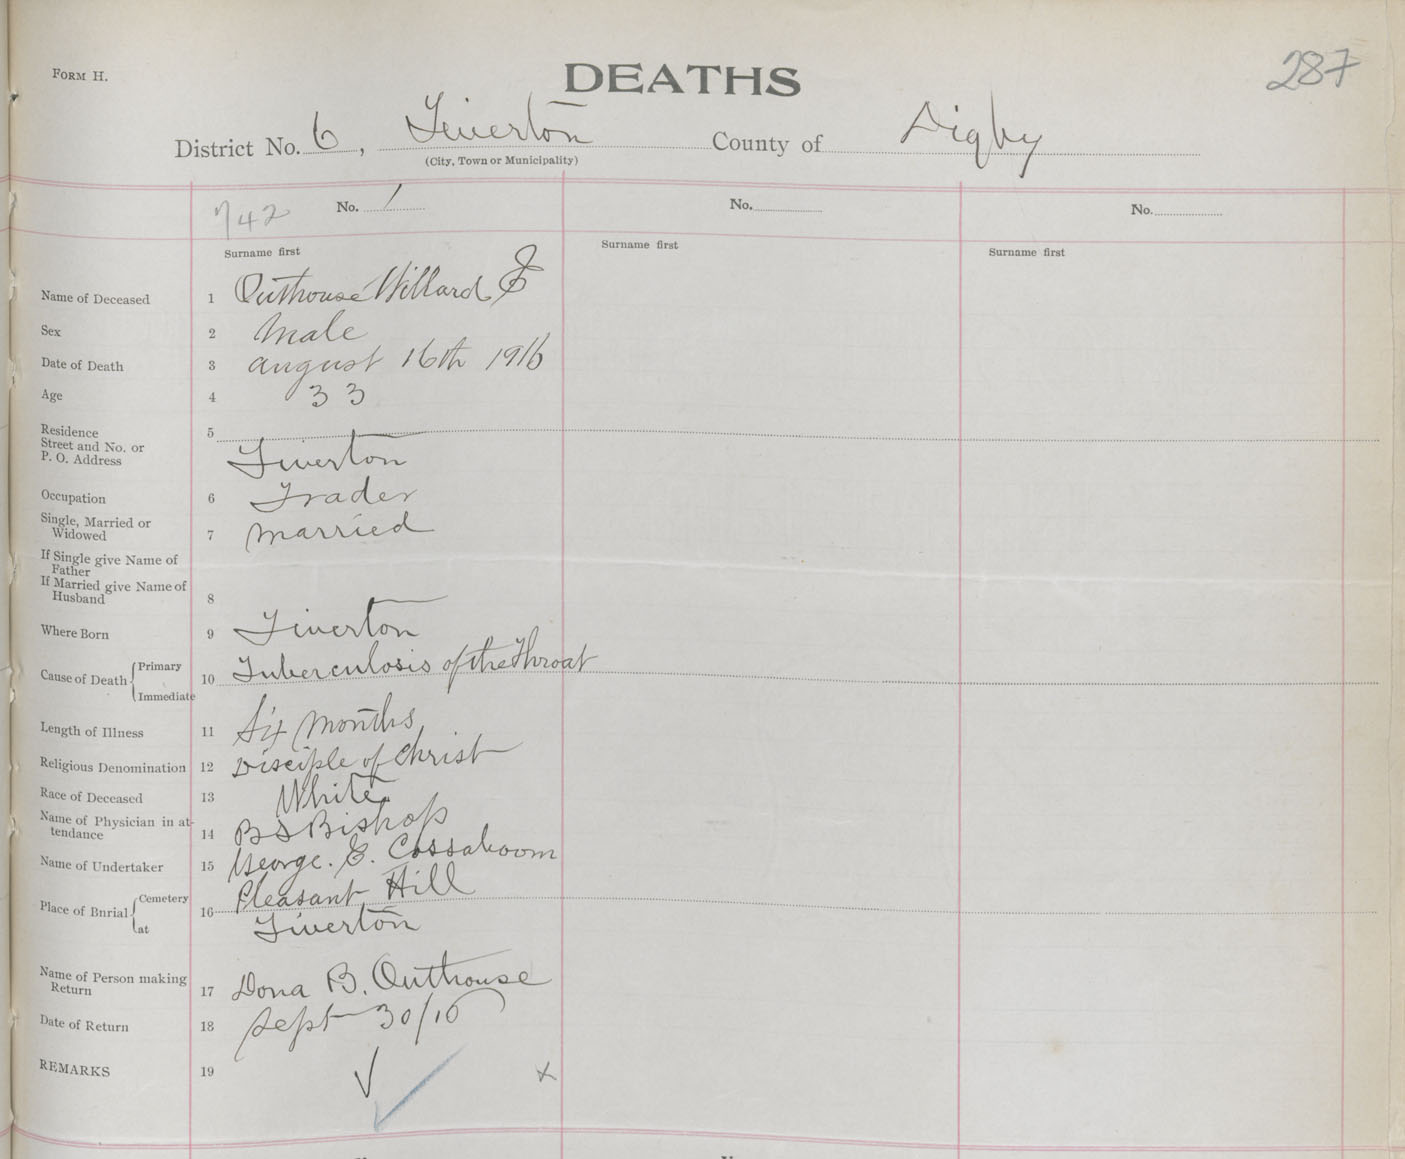 FORM H.
DEATHS
287
District No. 6, Tiverton County of Digby
(City, Town or Municipality)
742 No. 1 No. No.
Surname first Surname first Surname first
Name of Deceased 1 Outhouse Willard E
Sex 2 Male
Date of Death 3 August 16th 1916
Age 4 33
Residence 5
Street and No. or
P. O. Address Tiverton
Occupation 6 Trader
Single, Married or
Widowed 7 Married
If Single give Name of
Father
If Married give Name of
Husband 8
Where Born 9 Tiverton
Cause of Death Primary 10 Tuberculosis of the Throat
Immediate
Length of Illness 11 Six Months
Religious Denomination 12 Disciple of Christ
Race of Deceased 13 White
Name of Physician in at-
tendance 14 B S Bishop
Name of Undertaker 15 George. E. Cossaboom
Place of Bnrial Cemetery 16 Pleasant Hill
at Tiverton
Name of Person making
Return 17 Dona B. Outhouse
Date of Return 18 Sept 30/16
REMARKS 19